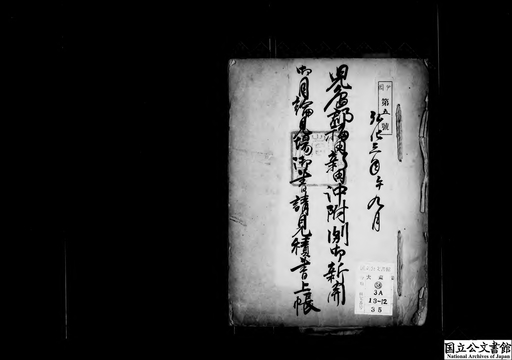 第五號
弘化三年午九月
児島郡福田新田沖附洲御新開
御目論見場御普請見積書上帳
3A
13-12
35
国立公文書館
National Archives of Japan